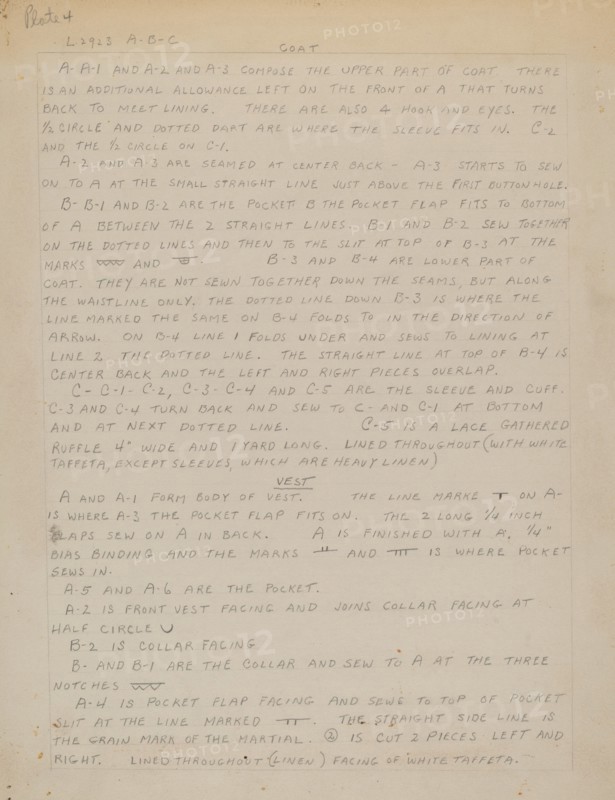 Plate 4
L 2923 A-B-C
COAT
A- A-1 AND A-2 AND A-3 COMPOSE THE UPPER PART OF COAT. THERE
IS AN ADDITIONAL ALLOWANCE LEFT ON THE FRONT OF A THAT TURNS
BACK TO MEET LINING. THERE ARE ALSO 4 HOOK AND EYES. THE
1/2 CIRCLE AND DOTTED DART ARE WHERE THE SLEEVE FITS IN. C-2
AND THE 1/2 CIRCLE ON C-1.
A-2 AND A-3 ARE SEAMED AT CENTER BACK - A-3 STARTS TO SEW
ON TO A AT THE SMALL STRAIGHT LINE JUST ABOVE THE FIRST BUTTONHOLE.
B- B-1 AND B-2 ARE THE POCKET B THE POCKET FLAP FITS TO BOTTOM
OF A BETWEEN THE 2 STRAIGHT LINES. B-1 AND B-2 SEW TOGETHER
ON THE DOTTED LINES AND THEN TO THE SLIT AT TOP OF B-3 AT THE
MARKS AND . B-3 AND B-4 ARE LOWER PART OF
COAT. THEY ARE NOT SEWN TOGETHER DOWN THE SEAMS, BUT ALONG
THE WAISTLINE ONLY. THE DOTTED LINE DOWN B-3 IS WHERE THE
LINE MARKED THE SAME ON B-4 FOLDS TO IN THE DIRECTION OF
ARROW. ON B-4 LINE 1 FOLDS UNDER AND SEWS TO LINING AT
LINE 2 THE DOTTED LINE. THE STRAIGHT LINE AT TOP OF B-4 IS
CENTER BACK AND THE LEFT AND RIGHT PIECES OVERLAP.
C- C-1- C-2, C-3- C-4 AND C-5 ARE THE SLEEVE AND CUFF.
C-3 AND C-4 TURN BACK AND SEW TO C- AND C-1 AT BOTTOM
AND AT NEXT DOTTED LINE. C-5 IS A LACE GATHERED
RUFFLE 4" WIDE AND 1 YARD LONG. LINED THROUGHOUT (WITH WHITE
TAFFETA, EXCEPT SLEEVES, WHICH ARE HEAVY LINEN)
VEST
A AND A-1 FORM BODY OF VEST. THE LINE MARKE ON A-
IS WHERE A-3 THE POCKET FLAP FITS ON. THE 2 LONG 1/4 INCH
LAPS SEW ON A IN BACK. A IS FINISHED WITH A 1/4"
BIAS BINDING AND THE MARKS AND IS WHERE POCKET
SEWS IN.
A-5 AND A-6 ARE THE POCKET.
A-2 IS FRONT VEST FACING AND JOINS COLLAR FACING AT
HALF CIRCLE
B-2 IS COLLAR FACING
B- AND B-1 ARE THE COLLAR AND SEW TO A AT THE THREE
NOTCHES
A-4 IS POCKET FLAP FACING AND SEWS TO TOP OF POCKET
SLIT AT THE LINE MARKED . THE STRAIGHT SIDE LINE IS
THE GRAIN MARK OF THE MARTIAL. 2 IS CUT 2 PIECES LEFT AND
RIGHT. LINED THROUGHOUT (LINEN) FACING OF WHITE TAFFETA.
PHOTO12